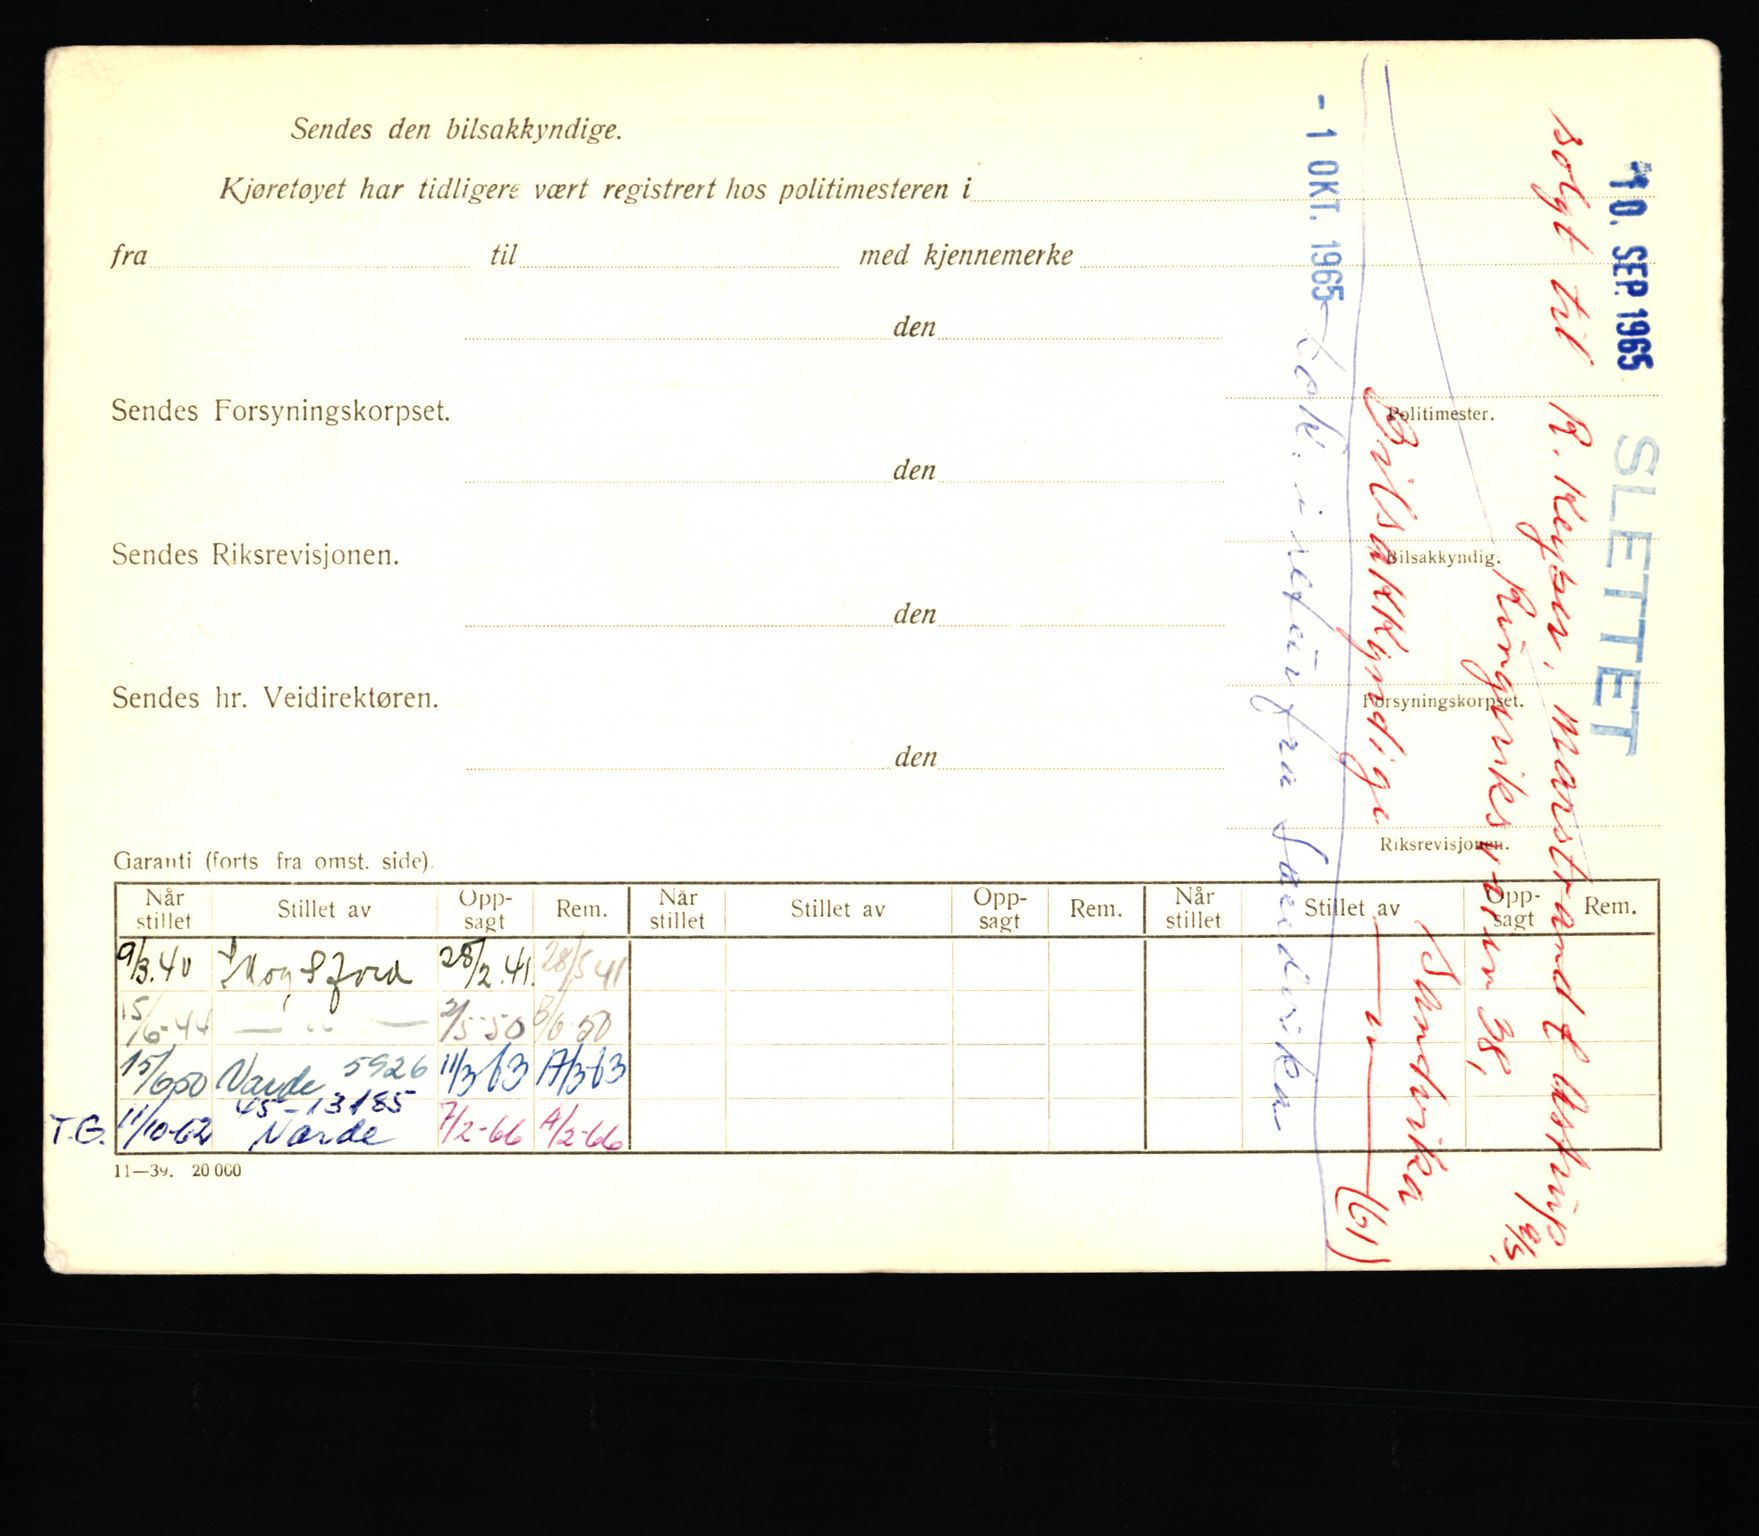 Sendes den bilsakkyndige.
Kjøretøyet har tidligere vært registrert hos politimesteren i
fra til med kjennemerke
den
Politimester.
Sendes Forsyningskorpset.
den
Bilsakkyndig.
Sendes Riksrevisjonen.
den
Forsyningskorpset.
Sendes hr. Veidirektøren.
den
Riksrevisjonen.
Garanti (forts fra omst. side).
Når stillet Stillet av Opp-sagt Rem. Når stillet Stillet av Opp-sagt Rem. Når stillet Stillet av Opp-sagt Rem.
9/3.40 28/2.41. 28/5 41
15/6-44 — " — 2/5-50 6-50
15/6 50 Varde 5926 11/3 63 17/3-63
45-13185
T.G. 11/10-62 Varde 7/2-66 4/2-66
11—39. 20 000
10. SEP. 1965 SLETTET
solgt til R. Keyser, Marstrand & Astrup
Ringsriksveien 38,
Sandvika
Bilsakkyndige — " — (61)
- 1 OKT. 1965 fra Sandvika